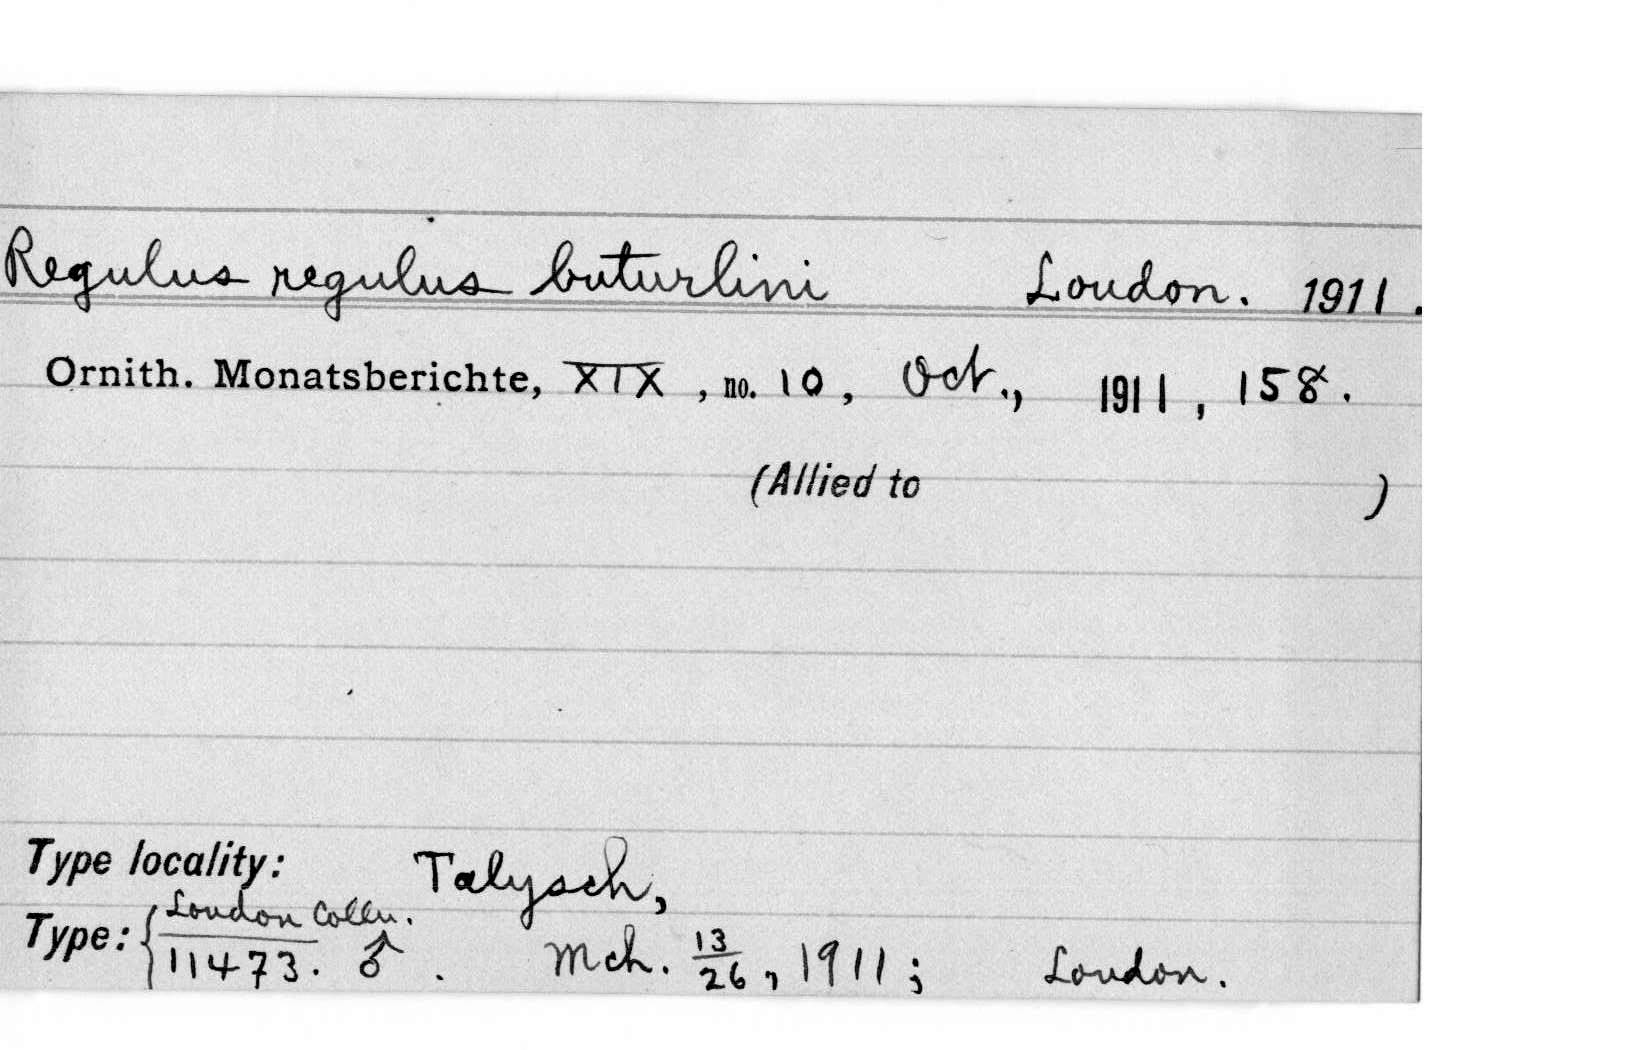 Regulus regulus buturlini Loudon. 1911.
Ornith. Monatsberichte, XIX, no. 10, Oct., 1911, 158.
(Allied to )
Type locality: Talysch,
Type: { Loudon Colln. 11473. ♂. Mch. 13/26, 1911; Loudon.